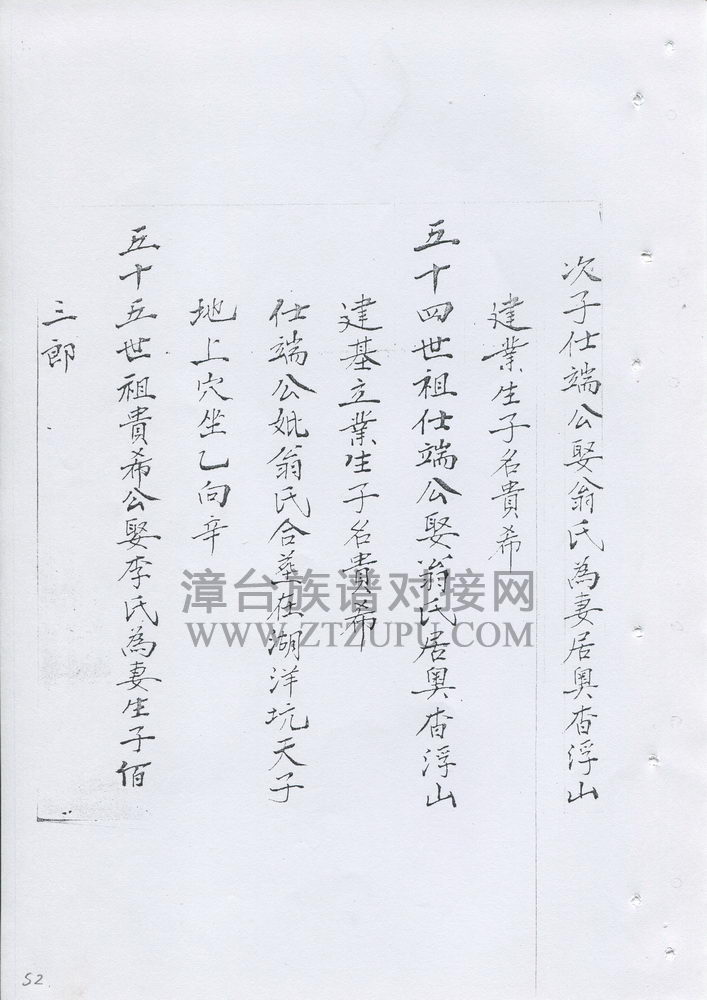 次子仕端公娶翁氏為妻居奧杳浮山
建業生子名貴希
五十四世祖仕端公娶翁氏居奧杳浮山
建基立業生子名貴希
仕端公妣翁氏合塟在湖洋坑天子
地上穴坐乙向辛
五十五世祖貴希公娶李氏為妻生子佰
三郎
漳台族谱对接网
WWW.ZTZUPU.COM
52